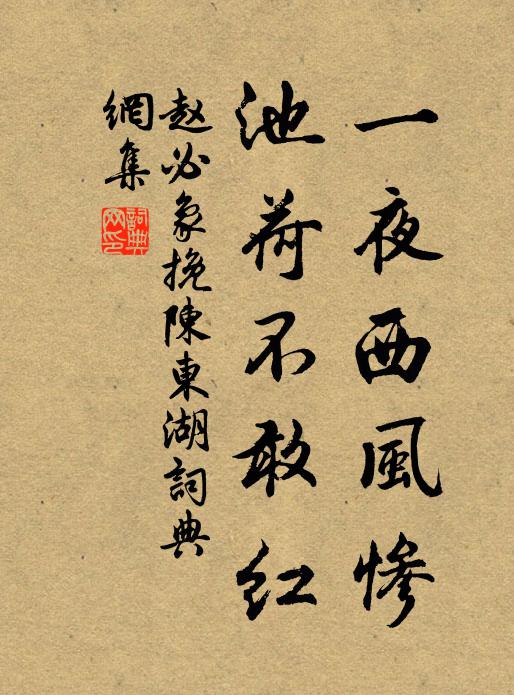 一夜西風慘
池荷不敢紅
赵必象挽陳東湖詞典
網集
詞典
网印